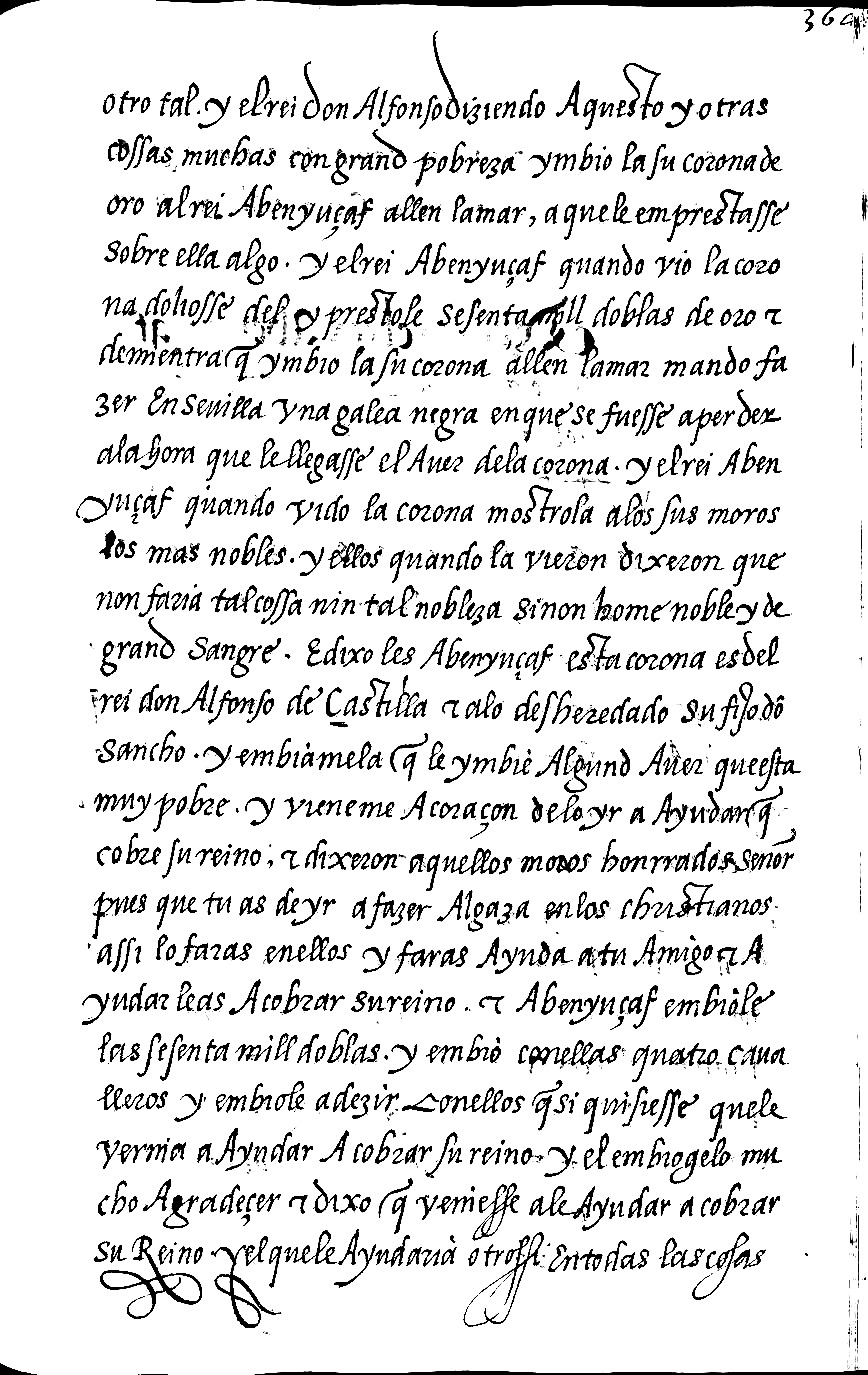 364
otro tal. y el rei don Alfonso diziendo Aquesto y otras
cossas muchas con grand pobreza ymbio la su corona de
oro al rei Abenyuçaf allen la mar, a que le emprestasse
sobre ella algo. y el rei Abenyuçaf quando vio la coro
na doliosse del y prestole sesenta mill doblas de oro τ
demientra q̃ ymbio la su corona allen la mar mando fa
zer En Sevilla vna galea negra en que se fuesse a perder
ala hora que le llegasse el Auer dela corona. y el rei Aben
yuçaf quando vido la corona mostrola alos sus moros
los mas nobles. y ellos quando la vieron dixeron que
non faria tal cossa nin tal nobleza sinon home noble y de
grand sangre. E dixo les Abenyuçaf esta corona es del
rei don Alfonso de Castilla τ alo desheredado su fijo dõ
sancho. y embiàmela q̃ le ymbiè Algund Auer que esta
muy pobre. y vieneme A coraçon de lo yr a Ayudar q̃
cobre su reino, τ dixeron aquellos moros honrrados señor
pues que tu as de yr a fazer Algaza en los christianos
assi lo faras en ellos y faras Ayuda a tu Amigo τ A
yudar le as A cobrar su reino. τ Abenyuçaf embiòle
las sesenta mill doblas. y embiò con ellas quatro caua
lleros y embiole a dezir Con ellos q̃ si quisiesse que le
vernia a Ayudar A cobrar su reino. y el embiogelo mu
cho Agradeçer τ dixo q̃ veniesse a le Ayudar a cobrar
su Reino y el que le Ayudarià otrossi En todas las cosas